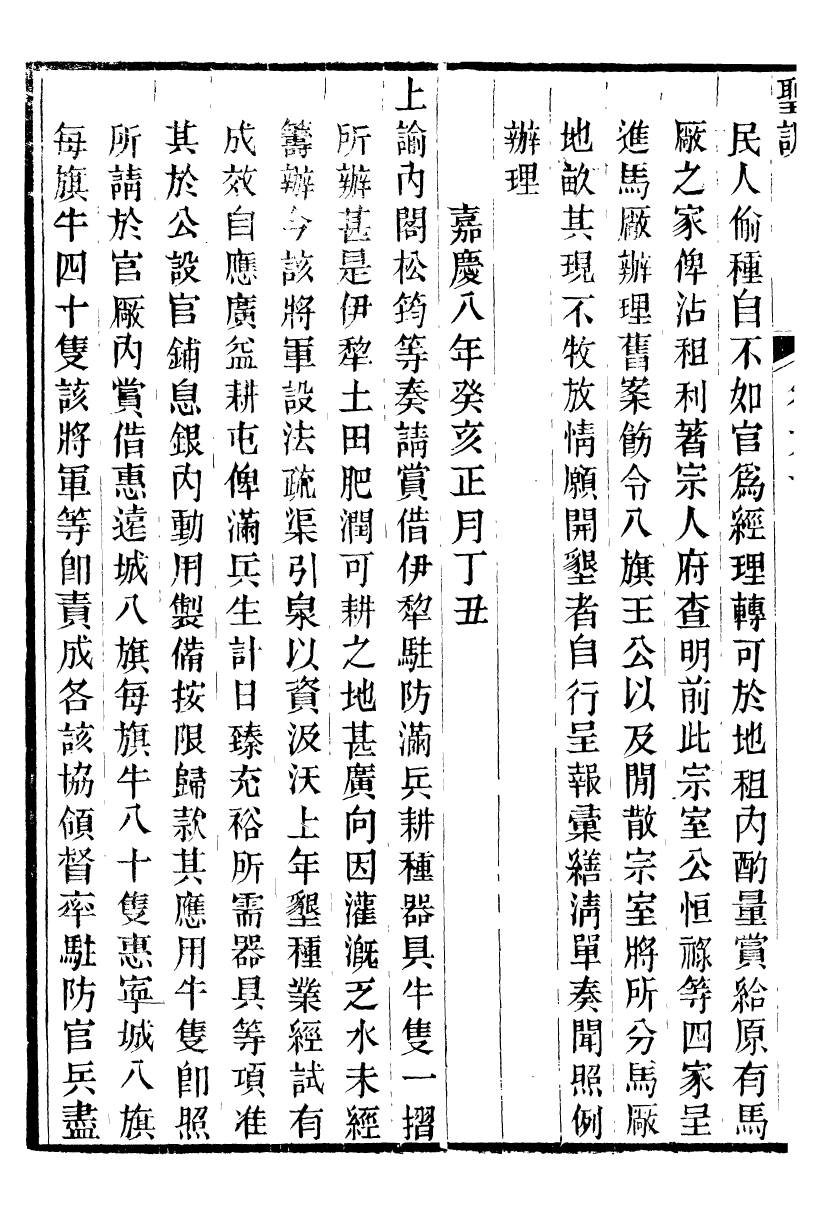 聖訓
民人偷種自不如官爲經理轉可於地租內酌量賞給原有馬
厰之家俾沾租利著宗人府查明前此宗室公恒祿等四家呈
進馬厰辦理舊案飭令八旗王公以及閒散宗室將所分馬厰
地畝其現不牧放情願開墾者自行呈報彙繕淸單奏聞照例
辦理
嘉慶八年癸亥正月丁丑
上諭內閣松筠等奏請賞借伊犂駐防滿兵耕種器具牛隻一摺
所辦甚是伊犂土田肥潤可耕之地甚廣向因灌漑乏水未經
籌辦今該將軍設法疏渠引泉以資汲沃上年墾種業經試有
成效自應廣益耕屯俾滿兵生計日臻充裕所需器具等項准
其於公設官鋪息銀內動用製備按限歸款其應用牛隻卽照
所請於官厰內賞借惠遠城八旗每旗牛八十隻惠寧城八旗
每旗牛四十隻該將軍等卽責成各該協領督率駐防官兵盡